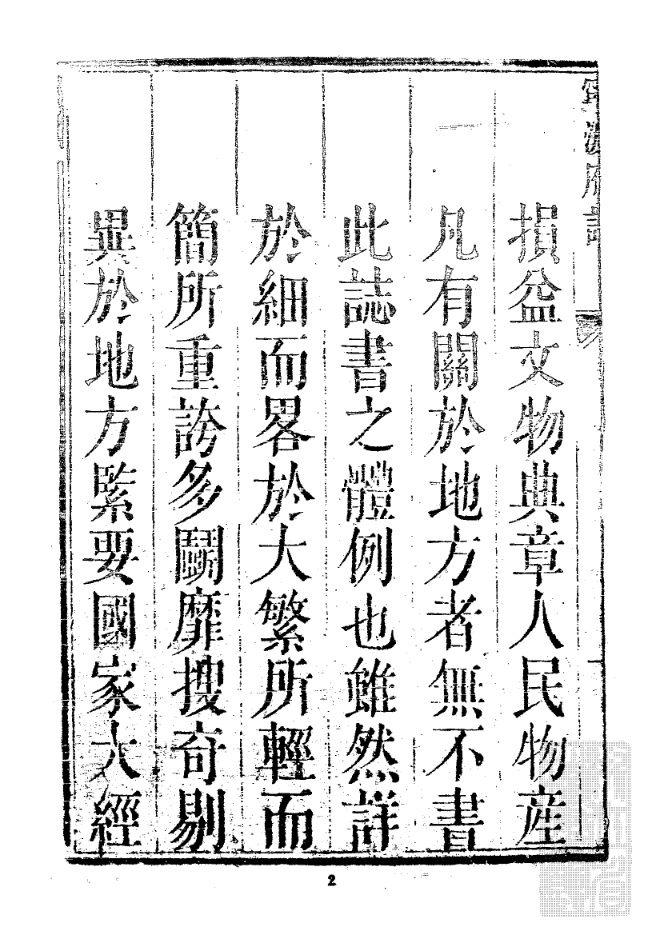 損益文物典章人民物産
凡有關於地方者無不書
此誌書之體例也雖然詳
於細而畧於大繁所輕而
簡所重誇多鬭靡搜奇剔
異於地方緊要國家大經
2